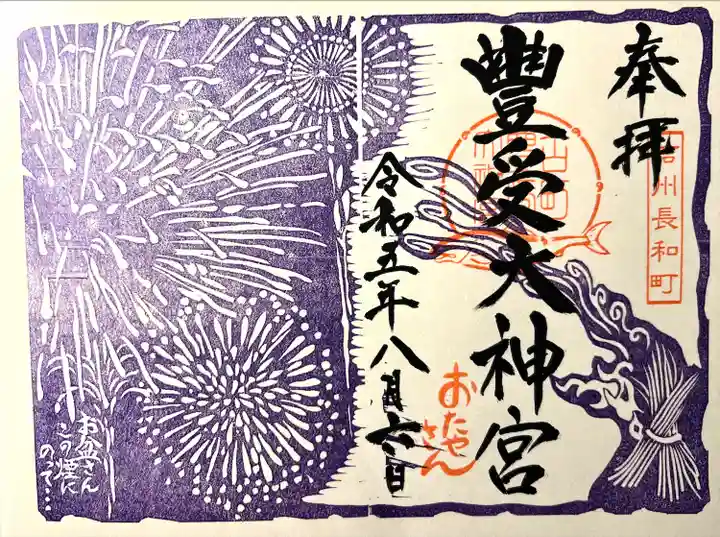 奉拝
信州長和町
豊受大神宮
おたやさん
令和五年八月六日
お盆さん
この煙に
のって…